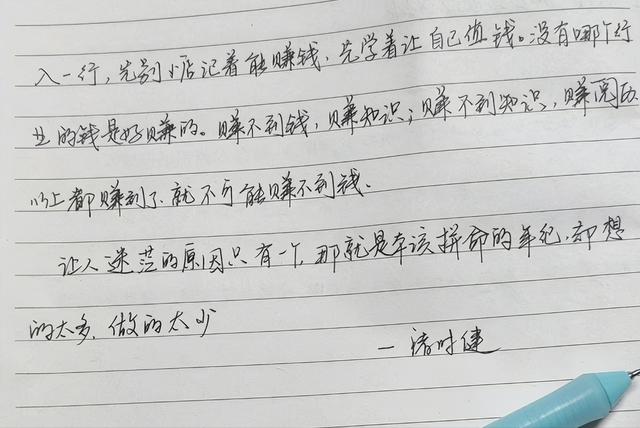 入一行，先别惦记着能赚钱，先学着让自己值钱。没有哪个行
业的钱是好赚的。赚不到钱，赚知识；赚不到知识，赚阅历
以上都赚到了，就不可能赚不到钱.
让人迷茫的原因只有一个，那就是本该拼命的年纪，却想
的太多，做的太少
—褚时健